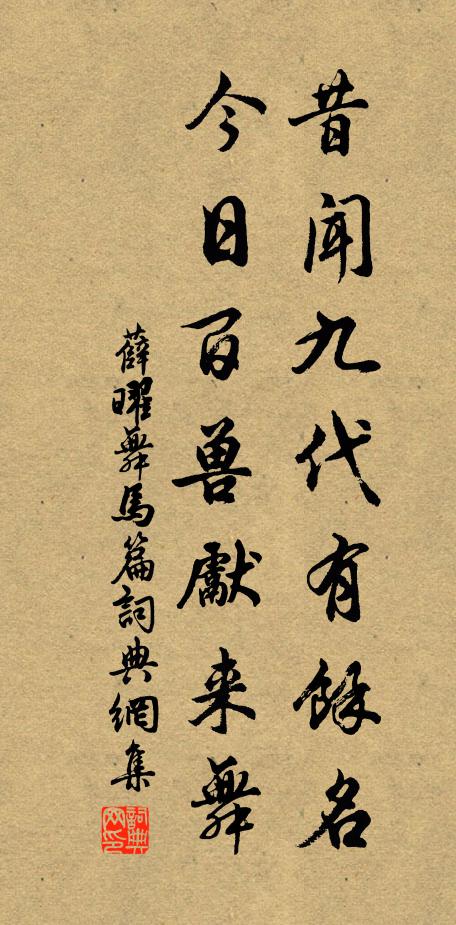 昔聞九代有餘名
今日百兽獻来舞
薛曜舞馬篇詞典網集
詞典网印